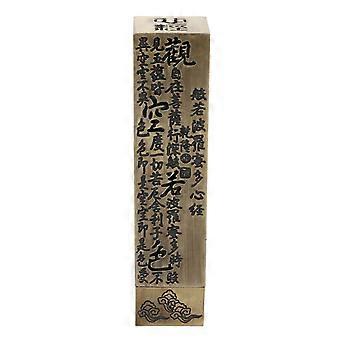 心經
般若波羅蜜多心経
觀自在菩薩行深般若波羅蜜多時照
見五蘊皆空度一切苦厄舍利子色不
異空空不異色色即是空空即是色受
乾隆